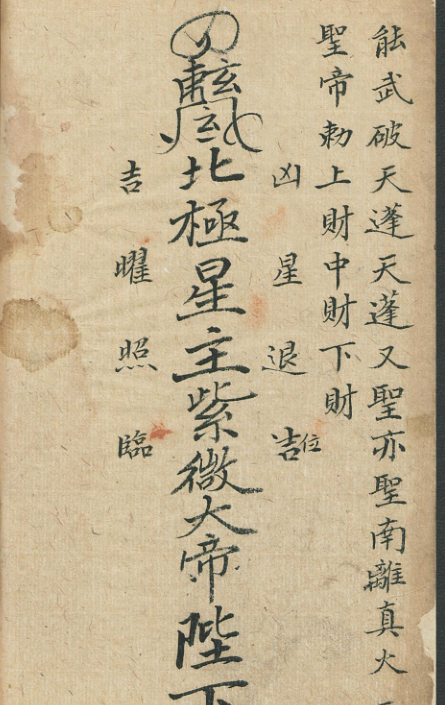 能武破天蓬天蓬又聖亦聖南離真火
聖帝勅上財中財下財
凶星退吉位
北極星主紫微大帝陛下
吉曜照臨